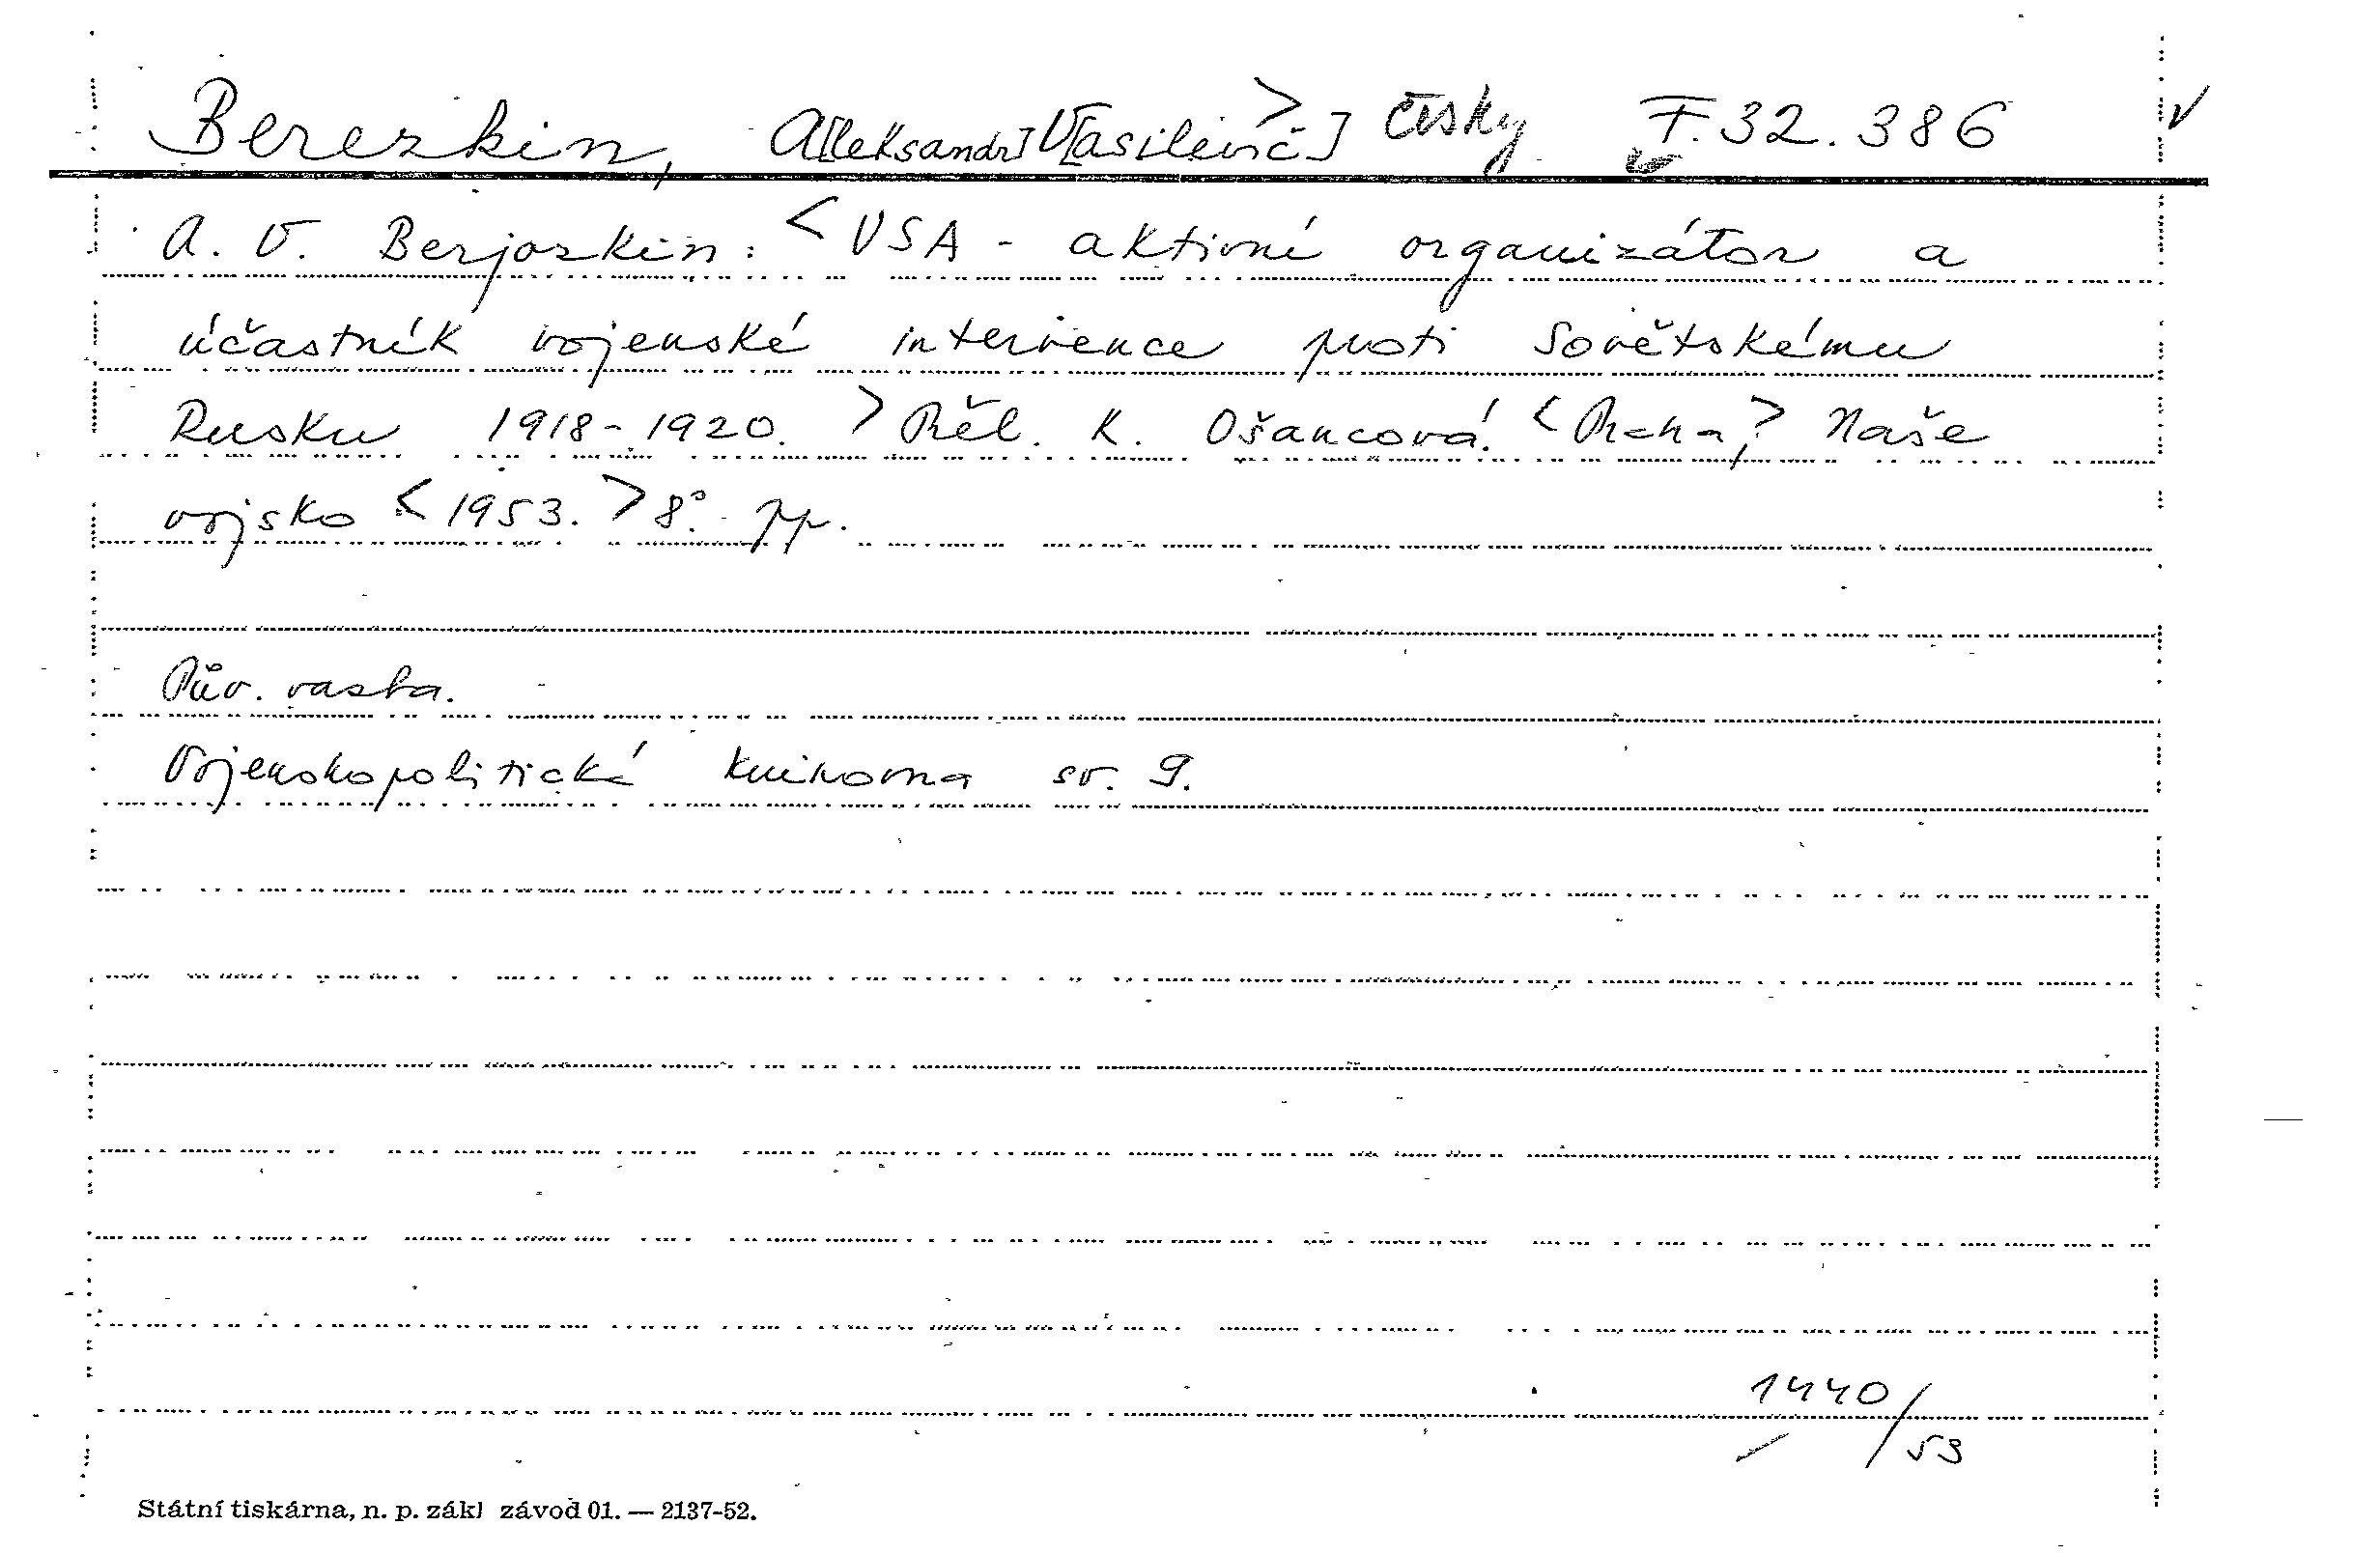 Berezkin, A[leksandr] V[asilevič] > česky F. 32.386 v
A. V. Berjozkin: < USA - aktivní organizátor a
účastník vojenské intervence proti Sovětskému
Rusku 1918-1920. > Přel. K. Ošancová. < Praha, > Naše
vojsko < 1953. > 8°. pp.
Pův. vazba.
Vojenskopolitická knihovna sv. 9.
1440/
53
Státní tiskárna, n. p. zákl závod 01. — 2137-52.